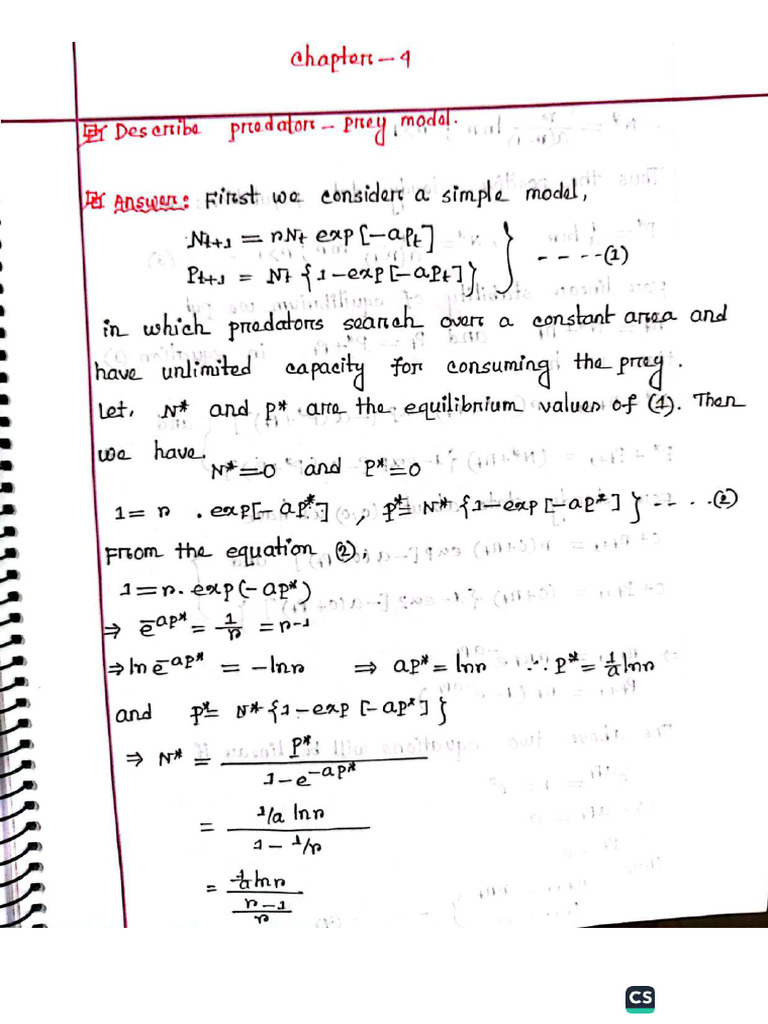 Chapter-4
Describe predator-prey model.
Answer: First we consider a simple model,
Nt+1 = rNt exp[-aPt]
Pt+1 = Nt {1-exp[-aPt]} ----(1)
in which predators search over a constant area and
have unlimited capacity for consuming the prey.
Let, N* and P* are the equilibrium values of (1). Then
we have.
N*=0 and P*=0
1 = r . exp[-aP*] , P*= N* {1-exp[-aP*]} --- ..(2)
From the equation (2),
1=r.exp(-aP*)
⇒ e^-aP* = 1/r = r-1
⇒ ln e^-aP* = -lnr ⇒ aP* = lnr ∴ P* = 1/a lnr
and P*= N* {1-exp[-aP*]}
⇒ N* = P* / 1-e^-aP*
= 1/a lnr / 1-1/r
= 1/a lnr / r-1/r
CS